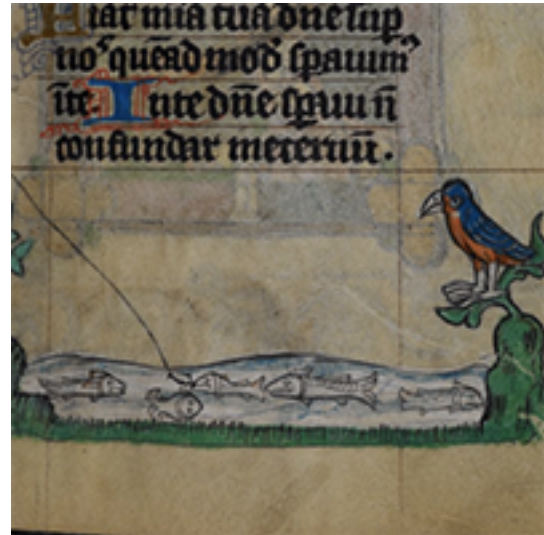 Fiat mia tua dñe sup
noˢ quēadmod̄ spauim᷒
ı̄te. In te dñe spaui ñ
confundar in eternū.